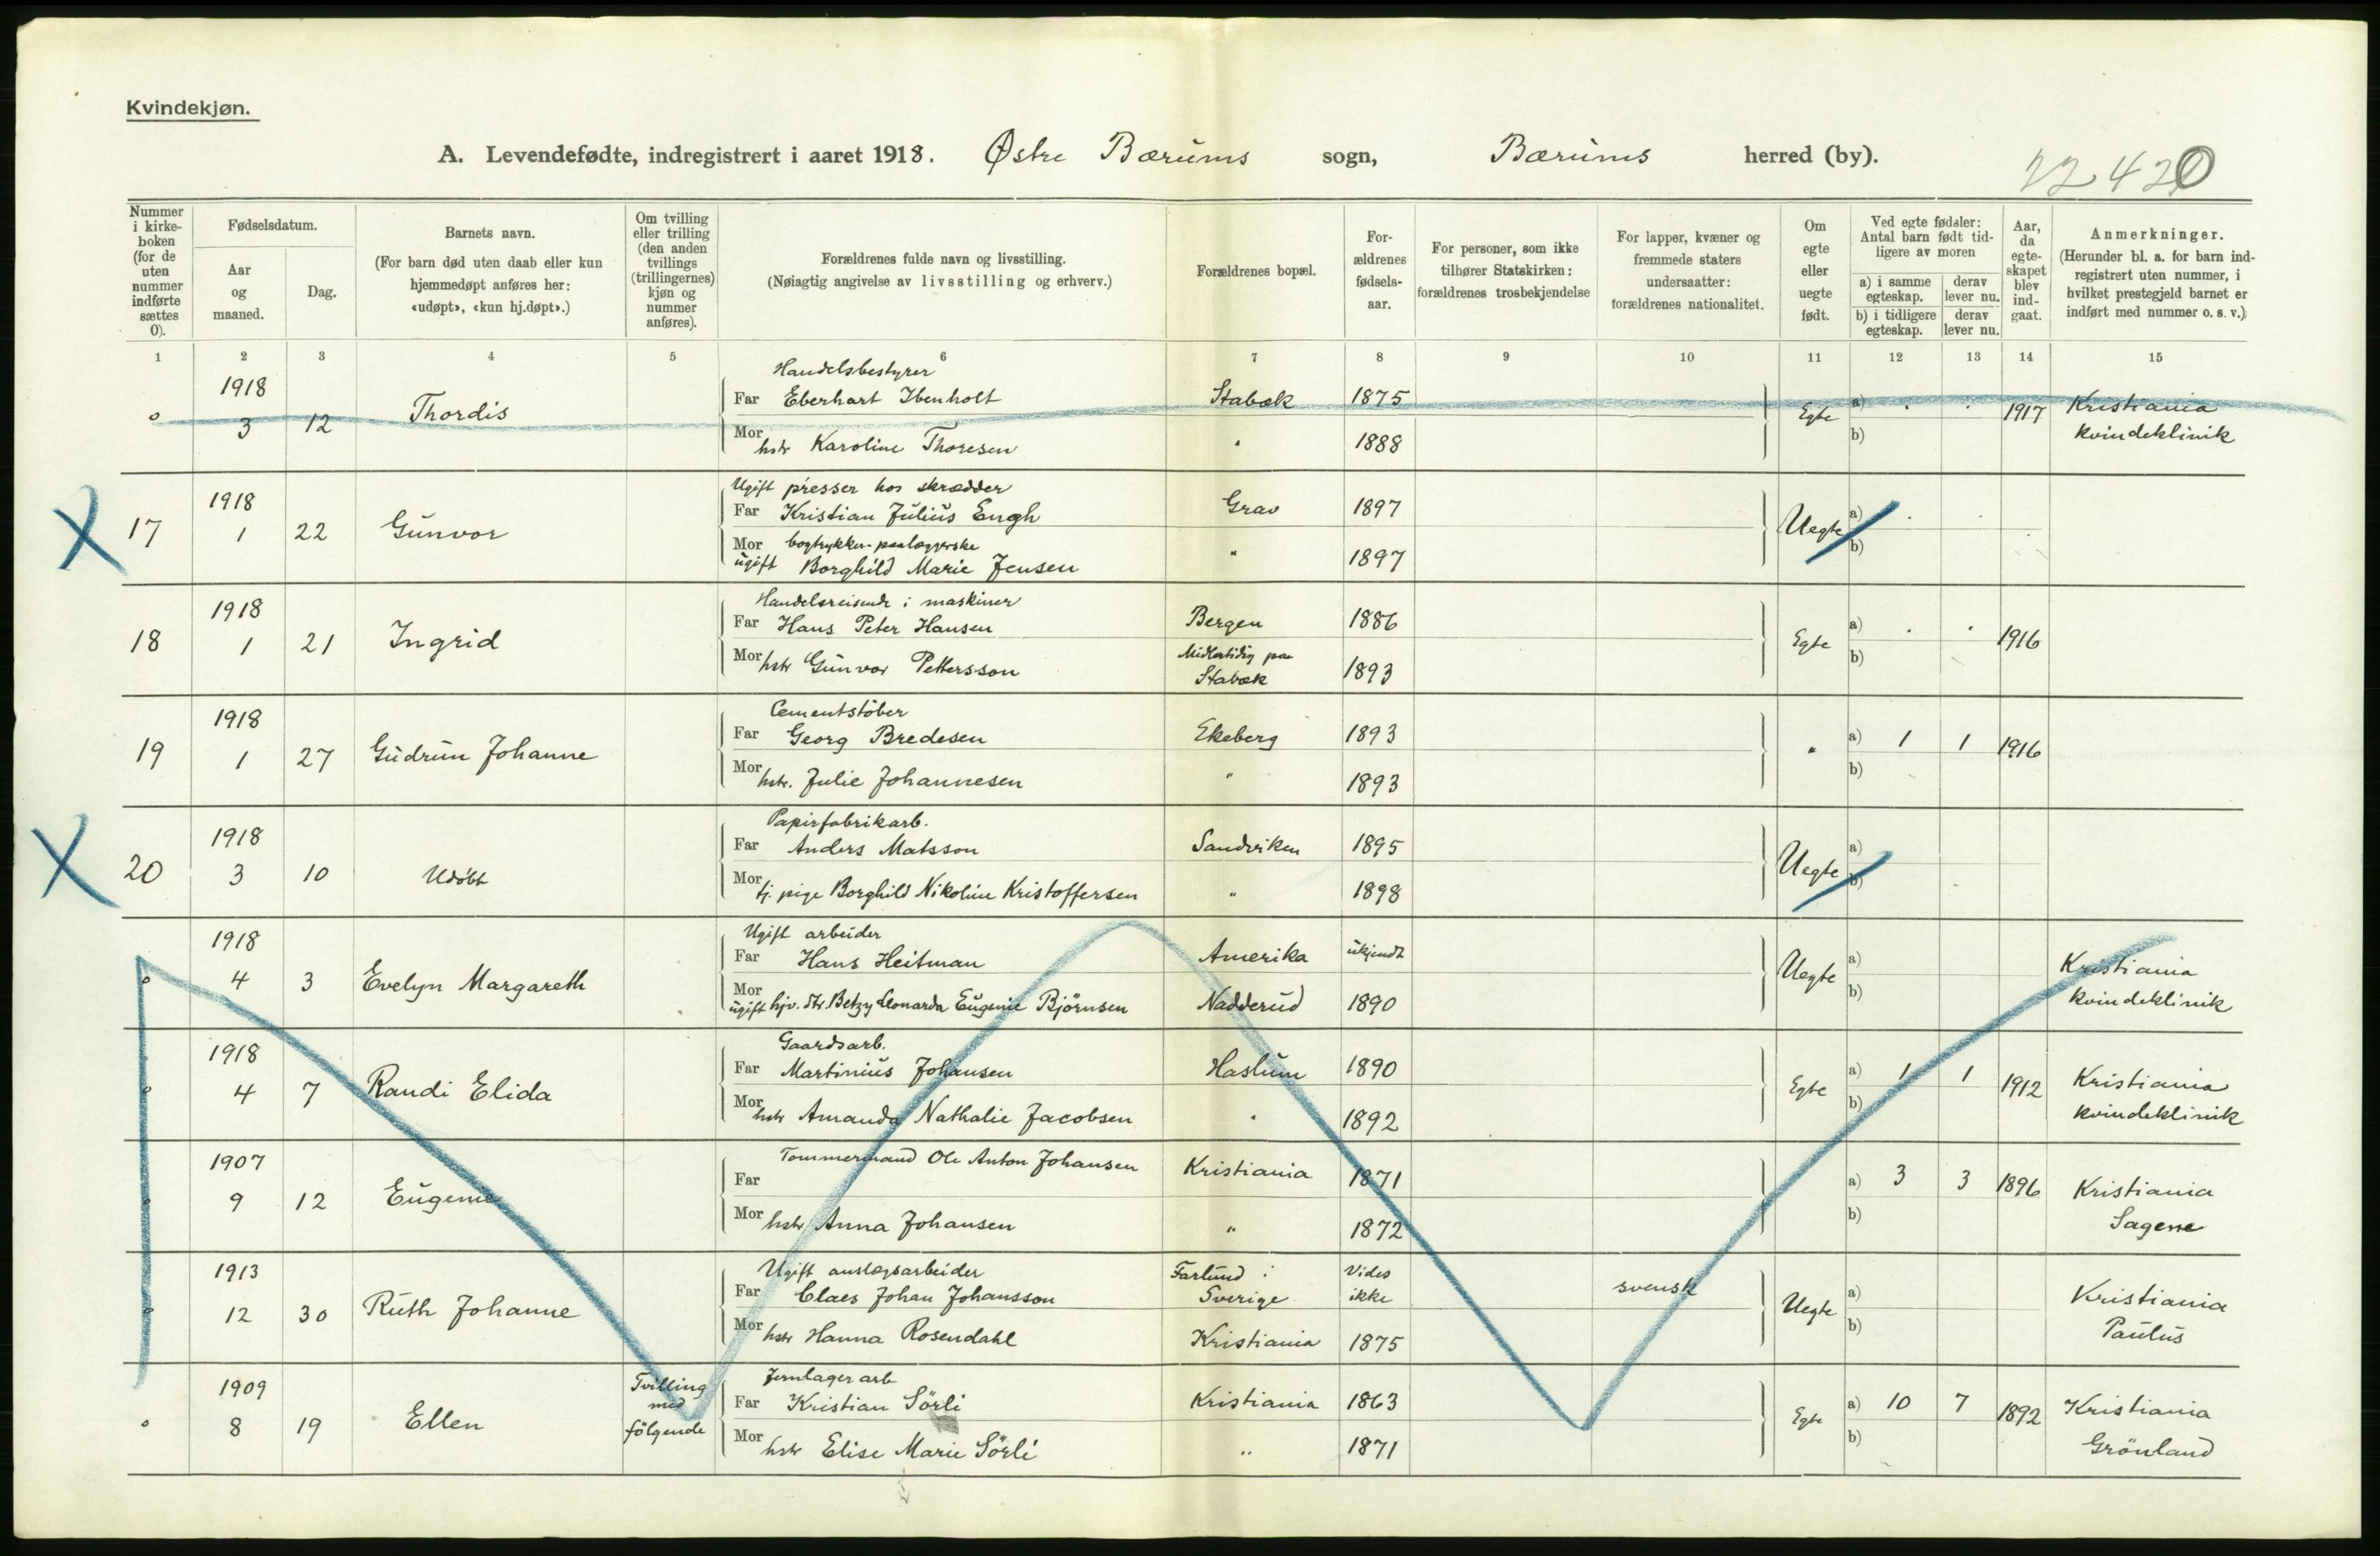 Kvindekjøn.
A. Levendefødte, indregistrert i aaret 1918. Østre Bærums sogn, Bærums herred (by).
22420
Nummer i kirkeboken (for de uten nummer indførte sættes 0).
Fødselsdatum.
Aar og maaned.
Dag.
Barnets navn.
(For barn død uten daab eller kun hjemmedøpt anføres her: «udøpt», «kun hj.døpt».)
Om tvilling eller trilling (den anden tvillings (trillingernes) kjøn og nummer anføres).
Forældrenes fulde navn og livsstilling.
(Nøiagtig angivelse av livsstilling og erhverv.)
Forældrenes bopæl.
Forældrenes fødselsaar.
For personer, som ikke tilhører Statskirken: forældrenes trosbekjendelse
For lapper, kvæner og fremmede staters undersaatter: forældrenes nationalitet.
Om egte eller uegte født.
Ved egte fødsler: Antal barn født tidligere av moren
a) i samme egteskap. derav lever nu.
b) i tidligere egteskap. derav lever nu.
Aar, da egteskapet blev indgaat.
Anmerkninger.
(Herunder bl. a. for barn indregistrert uten nummer, i hvilket prestegjeld barnet er indført med nummer o. s. v.)
1 2 3 4 5 6 7 8 9 10 11 12 13 14 15
Handelsbestyrer
1918 Far Eberhart Ibenholt Stabæk 1875 a) Kristiania
0 3 12 Thordis Egte 1917
Mor hstr Karoline Thoresen " 1888 b) kvindeklinik
Ugift presser hos skrædder
1918 Far Kristian Julius Engh Grav 1897 a)
17 1 22 Gunvor Uegte
Mor bogtrykker-paalæggerske
ugift Borghild Marie Jensen " 1897 b)
Handelsreisende i maskiner
1918 Far Hans Peter Hansen Bergen 1886 a)
18 1 21 Ingrid Egte 1916
Mor hstr Gunvor Pettersson Midlertidig paa Stabæk 1893 b)
Cementstöber
1918 Far Georg Bredesen Ekeberg 1893 a) 1 1
19 1 27 Gudrun Johanne " 1916
Mor hstr. Julie Johannesen " 1893 b)
Papirfabrikarb.
1918 Far Anders Matsson Sandviken 1895 a)
20 3 10 Udöbt Uegte
Mor tj. pige Borghild Nikoline Kristoffersen " 1898 b)
Ugift arbeider
1918 Far Hans Heitman Amerika ukjendt a) Kristiania
0 4 3 Evelyn Margareth Uegte
Mor ugift hjv. dtr. Betzy Leonarda Eugenie Björnsen Nadderud 1890 b) kvindeklinik
Gaardsarb.
1918 Far Martinius Johansen Haslum 1890 a) 1 1 Kristiania
0 4 7 Randi Elida Egte 1912
Mor hstr Amanda Nathalie Jacobsen " 1892 b) kvindeklinik
Tommermand Ole Anton Johansen
1907 Far Kristiania 1871 a) 3 3 1896 Kristiania
0 9 12 Eugenie
Mor hstr Anna Johansen " 1872 b) Sagene
Ugift anlægsarbeider
1913 Far Claes Johan Johansson Farlund i Sverige Vides ikke svensk a) Kristiania
0 12 30 Ruth Johanne Uegte
Mor hstr Hanna Rosendahl Kristiania 1875 b) Paulus
Jernlagerarb
1909 Tvilling med følgende Far Kristian Sörli Kristiania 1863 a) 10 7 Kristiania
0 8 19 Ellen Egte 1892
Mor hstr Elise Marie Sörli " 1871 b) Grönland